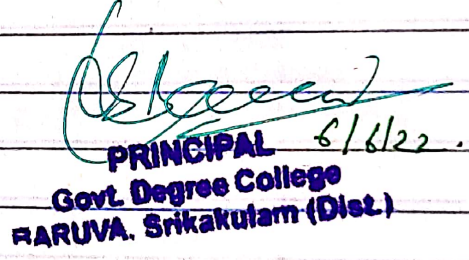 6/6/22.
PRINCIPAL
Govt. Degree College
BARUVA, Srikakulam (Dist.)